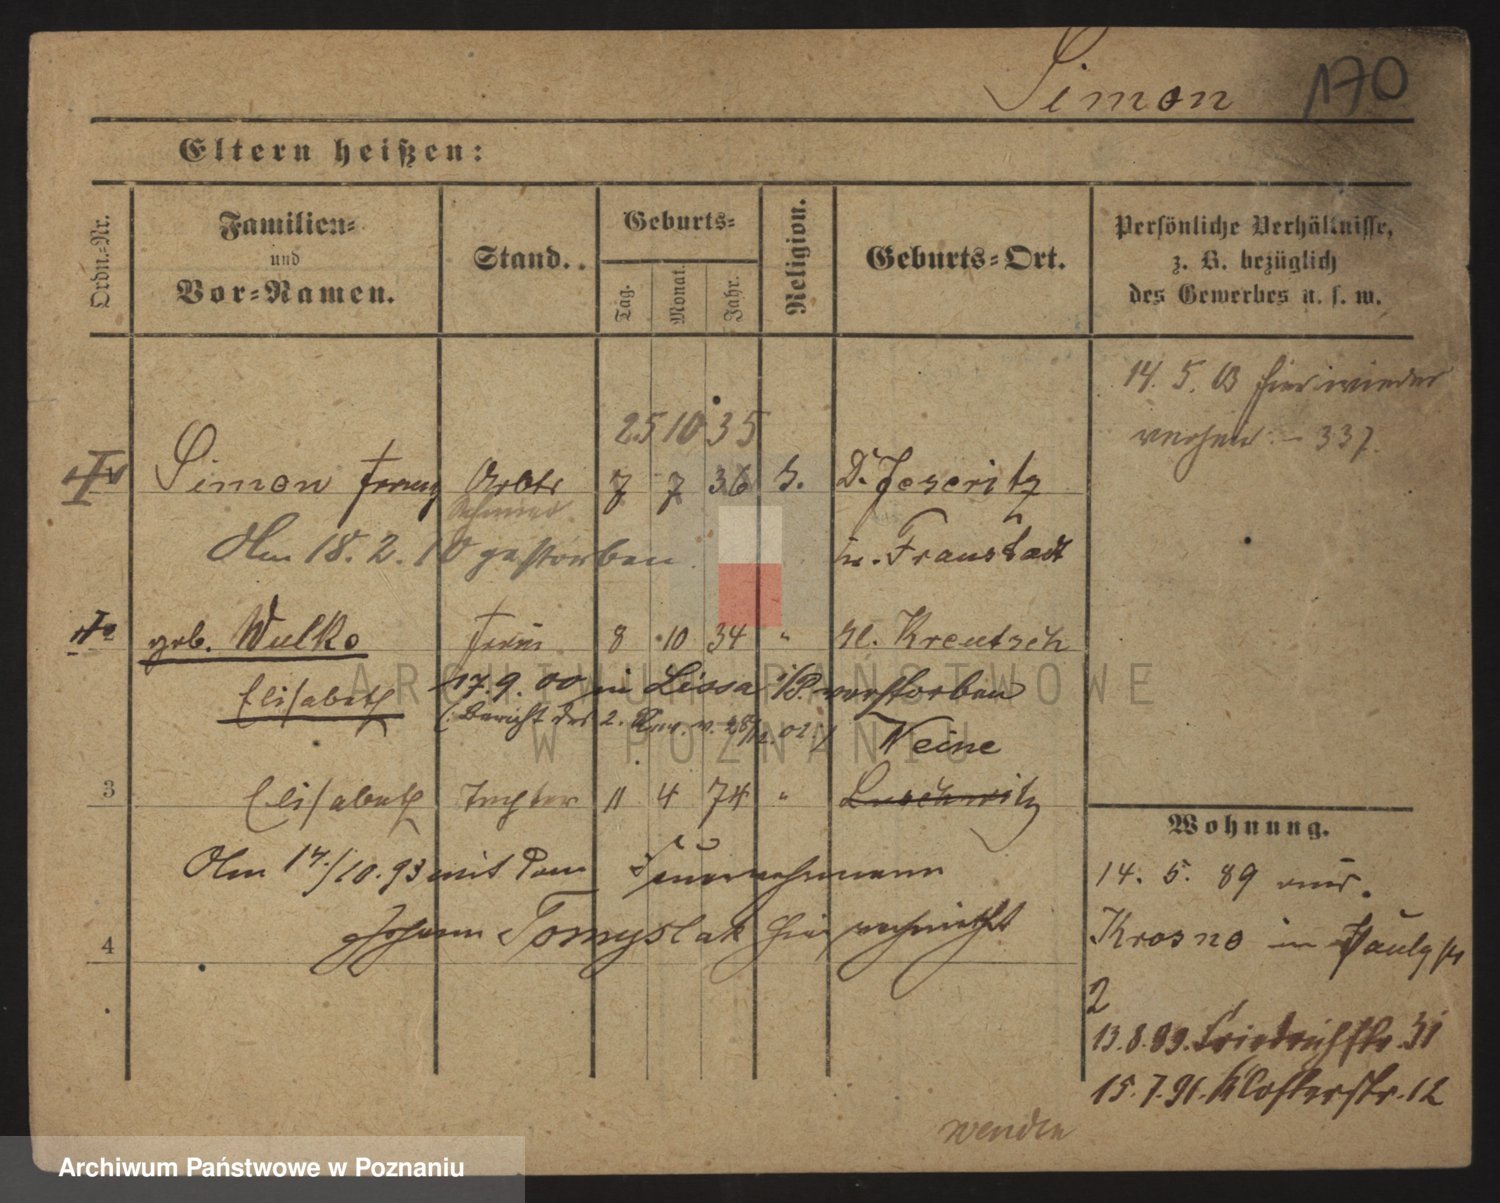 Simon 170
Eltern heißen:
Ordn.-Nr.
Familien-
und
Vor-Namen.
Stand.
Geburts-
Tag.
Monat.
Jahr.
Religion.
Geburts-Ort.
Persönliche Verhältnisse,
z. B. bezüglich
des Gewerbes u. s. w.
14. 5. 03 hier wieder
337.
25 10 35
Simon Franz Arbtr 7 7 36 D. Jeseritz
Am 18. 2. 10 gestorben
Kr. Fraustadt
geb. Wulko Frau 8 10 34 " Kl. Kreutsch
Elisabeth 17. 9. 00 in Lissa i/P. verstorben
(: Bericht des 2. Rev. v.
Neine
3 Elisabeth Tochter 11 4 74 " Luschwitz
Am 17./10. 93 mit dem Feuerwehrmann
4 Johann Tomyslak hier verheirathet
Wohnung.
14. 5. 89 aus
Krosno in Paulystr
2
13. 8. 89. Friedrichstr. 31
15. 7. 91. Klosterstr. 12
wenden
ARCHIWUM PAŃSTWOWE
W POZNANIU
Archiwum Państwowe w Poznaniu